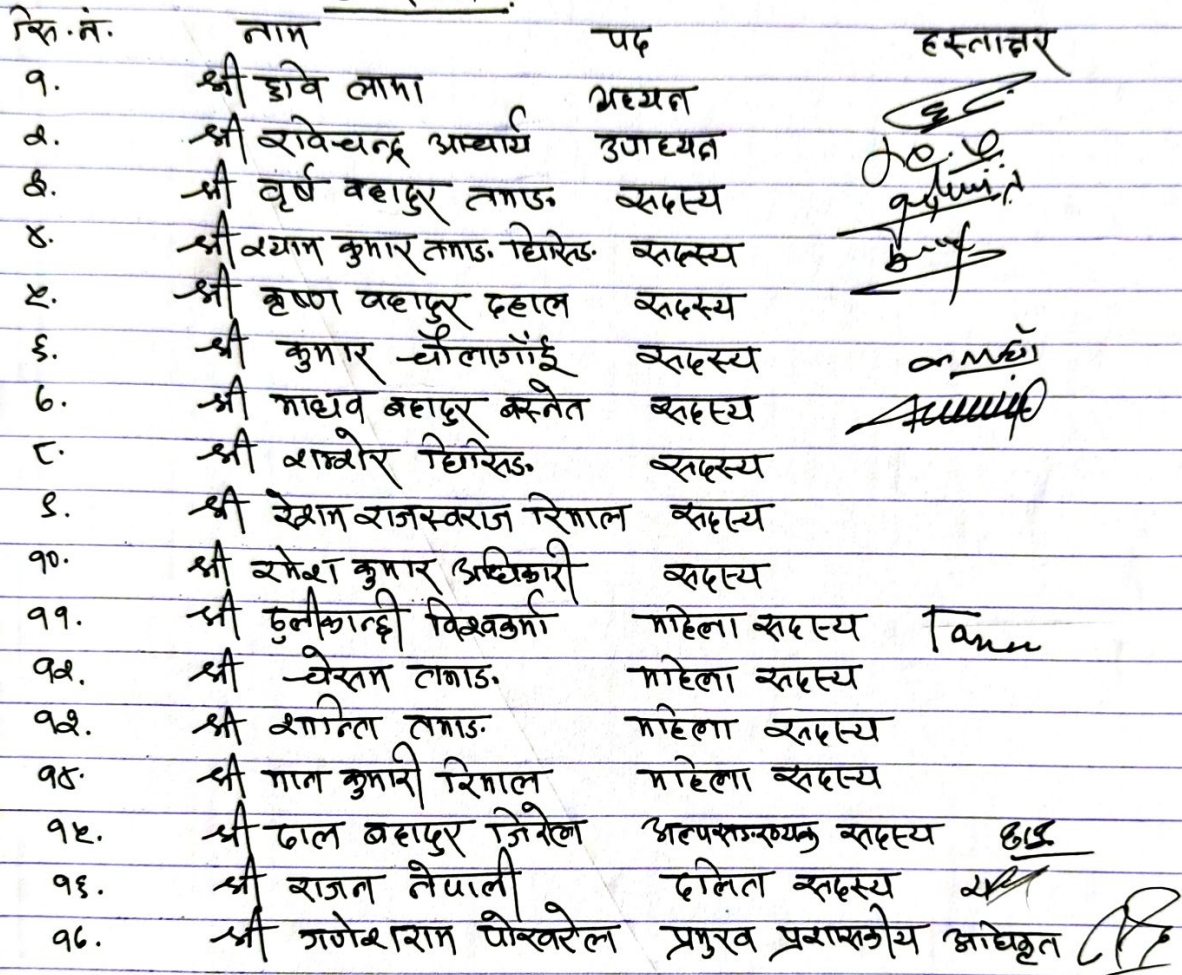 सि.नं. नाम पद हस्ताक्षर
१. श्री छवि लामा अध्यक्ष
२. श्री रविचन्द्र आचार्य उपाध्यक्ष
३. श्री वृर्ष बहादुर तमाङ सदस्य
४. श्री श्याम कुमार तमाङ घिसिङ सदस्य
५. श्री कृष्ण बहादुर दहाल सदस्य
६. श्री कुमार चौलागाँई सदस्य
७. श्री माधव बहादुर बस्नेत सदस्य
८. श्री शम्शेर घिसिङ सदस्य
९. श्री रेशम राजस्वराज रिमाल सदस्य
१०. श्री रमेश कुमार अधिकारी सदस्य
११. श्री ठुलीकान्छी विश्वकर्मा महिला सदस्य
१२. श्री चेसम तमाङ महिला सदस्य
१३. श्री शान्ति तमाङ महिला सदस्य
१४. श्री मान कुमारी रिमाल महिला सदस्य
१५. श्री ढाल बहादुर जिरेल अल्पसङख्यक सदस्य
१६. श्री राजन नेपाली दलित सदस्य
१७. श्री गणेशराम पोखरेल प्रमुख प्रशासकीय अधिकृत